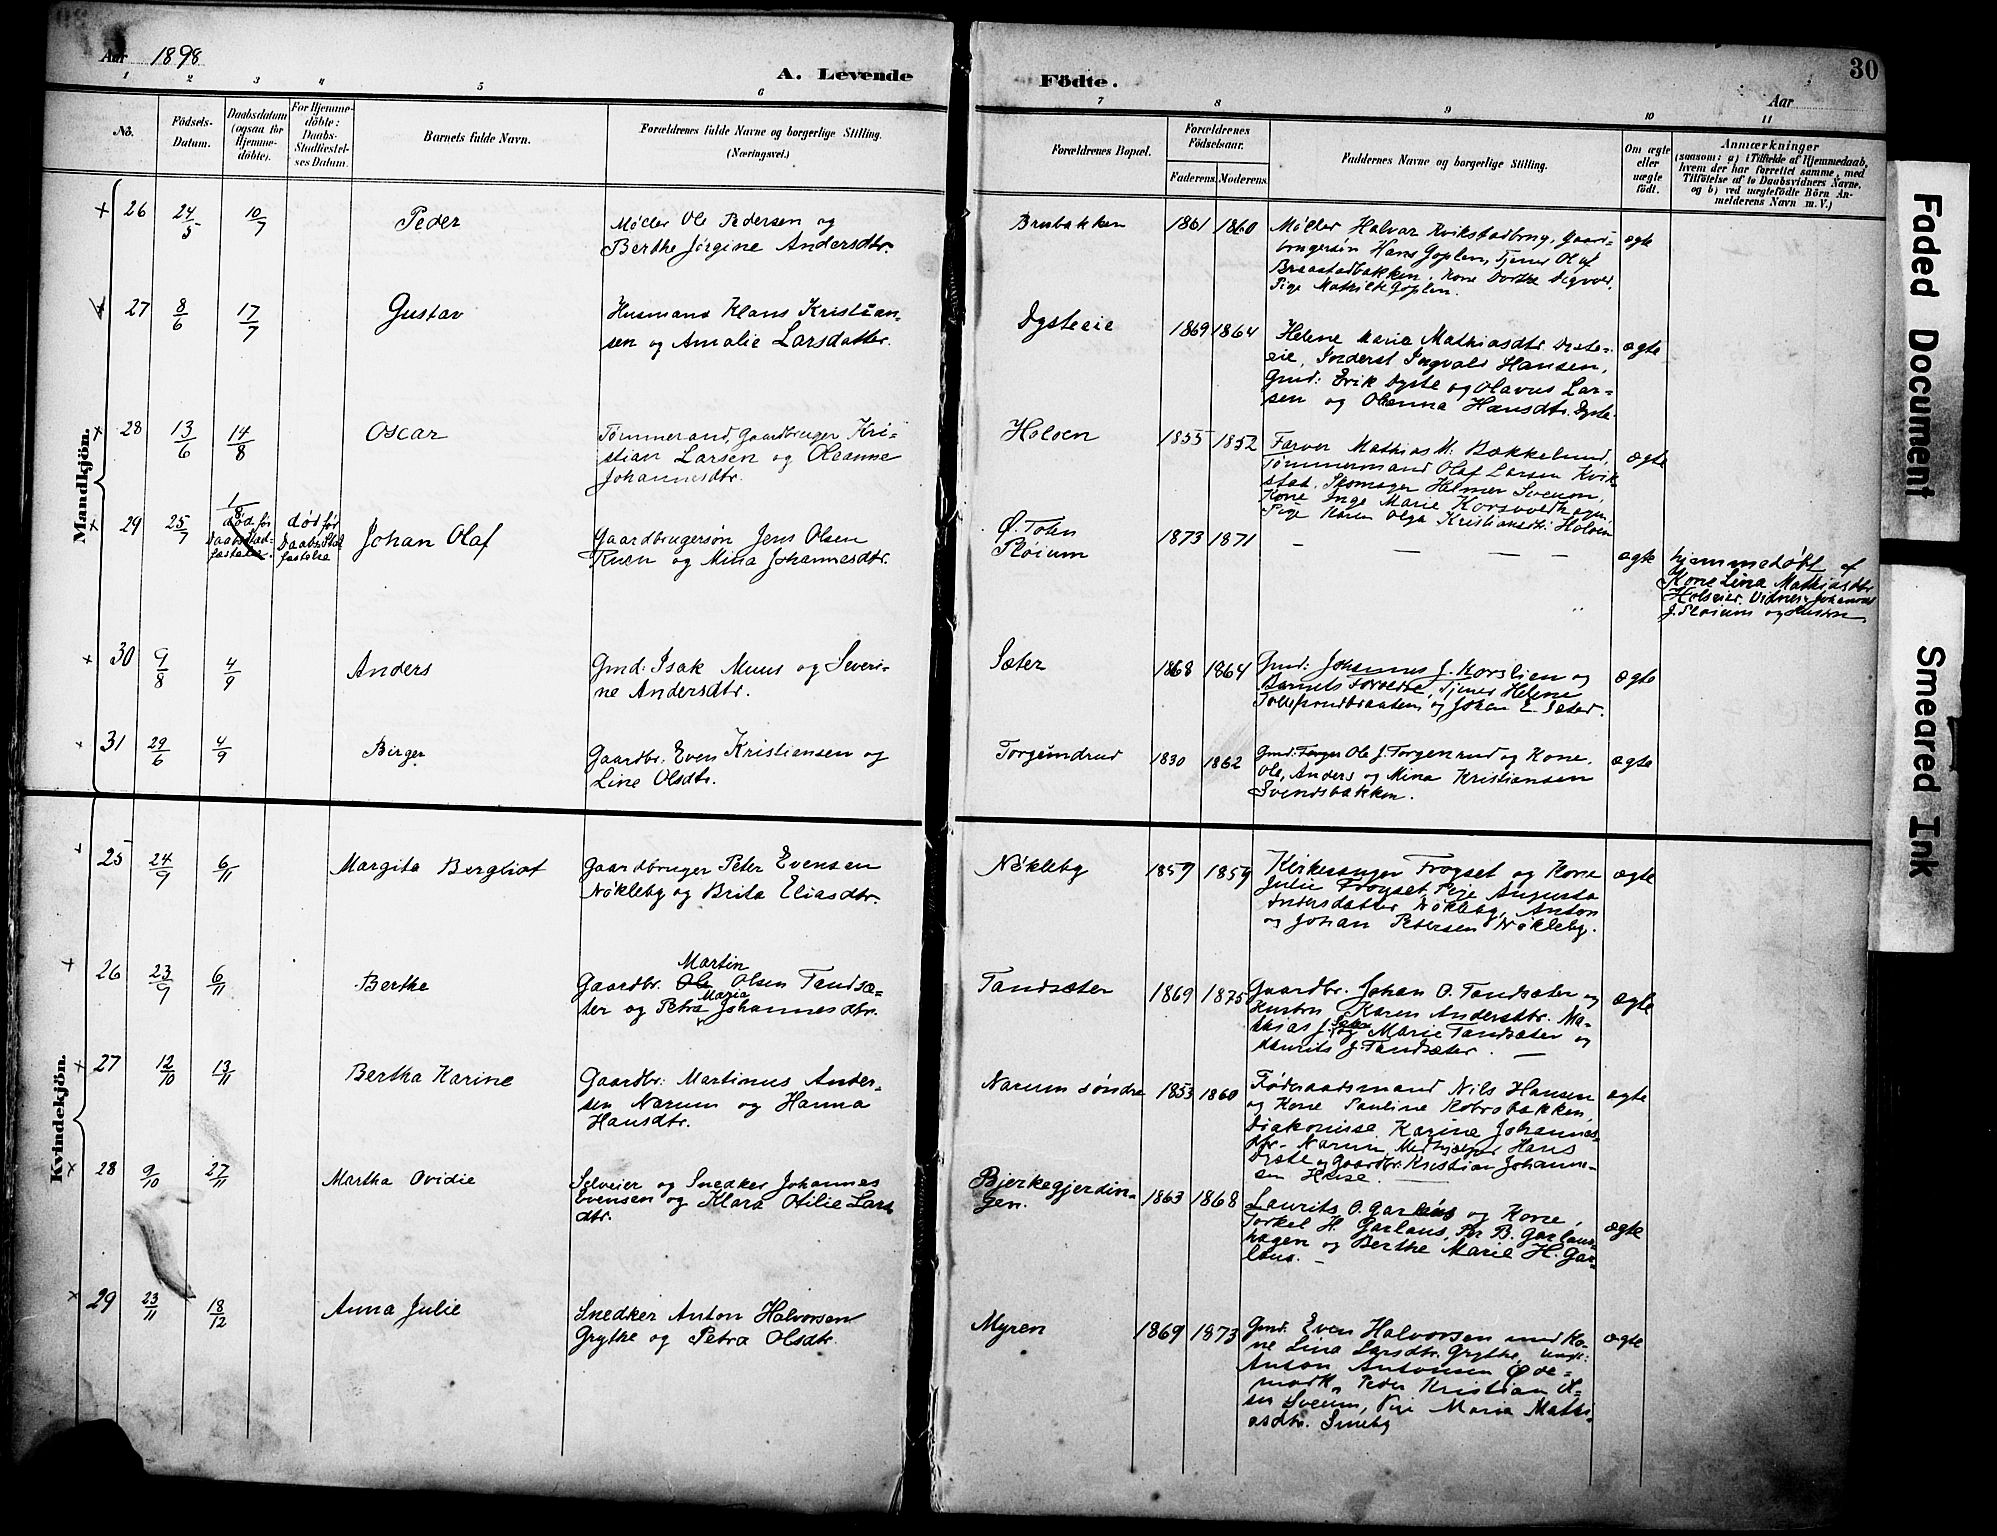 Aar 1898
A. Levende Födte.
30
Aar
1 2 3 4 5 6 7 8 9 10 11
No.
Födsels-Datum.
Daabsdatum (ogsaa for Hjemme-döbte).
For Hjemme-döbte: Daabs-Stadfæstel-ses Datum.
Barnets fulde Navn.
Forældrenes fulde Navne og borgerlige Stilling.
(Næringsvei.)
Forældrenes Bopæl.
Forældrenes Födselsaar.
Faderens. Moderens.
Faddernes Navne og borgerlige Stilling.
Om ægte eller uægte födt.
Anmærkninger
(saasom: a) i Tilfælde af Hjemmedaab,
hvem der har forrettet samme, med
Tilföielse af to Daabsvidners Navne,
og b) ved uægtefödte Börn An-
melderens Navn m. V.)
Mandkjön.
26 24/5 10/7 Peder
Møller Ole Pedersen og
Berthe Jørgine Andersdtr.
Brubakken 1861 1860
Møller Halvar Kvikstadbrug, Gaard-
brugersøn Hans Goplen, Tjener Olaf
Braastadbakken, Kone Dorthe
Pige Mathilde Goplen.
ægte
27 8/6 17/7 Gustav
Husmand Klaus Kristian-
sen og Amalie Larsdatter.
Dysteeie 1869 1864
Helene Marie Mathiasdtr. Dyste-
eie, Inderst Ingvald Hansen,
Gmd: Erik Dyste og Olavus Lar-
sen og Olenna Hansdtr. Dyste
ægte
28 13/6 14/8 Oscar
Tømmermand, Gaardbruger Kri-
stian Larsen og Oleanne
Johannesdtr.
Holoen 1855 1852
Farver Mathias M. Bakkelund,
Tømmermand Olaf Larsen Kvik-
stad, Skomager Helmer Sveum,
Kone Inge Marie
Pige Karen Olga Kristiansdtr. Holoen
ægte
29 25/7 1/8
død før Daabsstad-fæstelse.
død før Daabsstadfæstelse
Johan Olaf
Gaardbrugersøn Jens Olsen
Ruen og Mina Johannesdtr.
Ø. Toten
Pløium
1873 1871 — — — —
ægte
hjemmedøbt af
Kone Lina Mathiasdtr
Holseier. Vidner: Johannes
J. Pløium og Hustru
30 9/8 4/9 Anders
Gmd: Isak Muus og Severi-
ne Andersdtr.
Sæter 1868 1864
Gmd: Johannes J. Korslien og
Barnets Forældre, Tjener Helene
Tollefsrudbraaten og Johan E. Sæter.
ægte
31 29/6 4/9 Birger
Gaardbr. Even Kristiansen og
Line Olsdtr.
Torgeindrud 1830 1862
Gmd: Ole J. Torgenrud og Kone,
Ole, Anders og Mina Kristiansen
Svendsbakken.
ægte
Kvindekjön.
25 24/9 6/11 Margita Bergliot
Gaardbruger Peter Evensen
Nøkleby og Brita Eliasdtr.
Nøkleby 1859 1859
Kirkesanger Frøyset og Kone
Julie Frøyset, Pige Augusta
Andersdatter Nøkleby, Anton
og Johan Petersen Nøkleby.
ægte
26 23/9 6/11 Berthe
Martin
Gaardbr. Ole Olsen Tandsæ-
Maria
ter og Petra Johannesdtr.
Tandsæter 1869 1875
Gaardbr. Johan O. Tandsæter og
Hustru Karen Andersdtr. Ma-
thias J. og Marie Tandsæter og
Laurits J. Tandsæter. —
ægte
27 12/10 13/11 Bertha Karine
Gaardbr. Martinus Ander-
sen Narum og Hanna
Hansdtr.
Narum søndre 1853 1860
Fødeaadsmand Nils Hansen
og Kone Pauline
Diakonisse Karine Johannes-
dtr. Narum, Medhjælper Hans
Dyste og Gaardbr. Kristian Johanne-
sen Huse.
ægte
28 9/10 27/11 Martha Ovidie
Selveier og Snedker Johannes
Evensen og Klara Otilie Lars
dtr.
Bjerkegjerdin-
gen.
1863 1868
Laurits O. Garlaus og Kone,
Torkel H. Garlaus, Per B. Garlaus-
hagen og Berthe Marie H. Gar-
laus. —
ægte
29 23/11 18/12 Anna Julie
Snedker Anton Halvorsen
Grythe og Petra Olsdtr.
Myren 1869 1873
Gmd. Even Halvorsen med Ko-
ne Lina Larsdtr. Grythe, Ungk:
Anton Antonsen Øde-
mark, Peder Kristian Ol-
sen Sveum, Pige Maria Mathi-
asdtr. Smeby
ægte
Faded Document
Smeared Ink